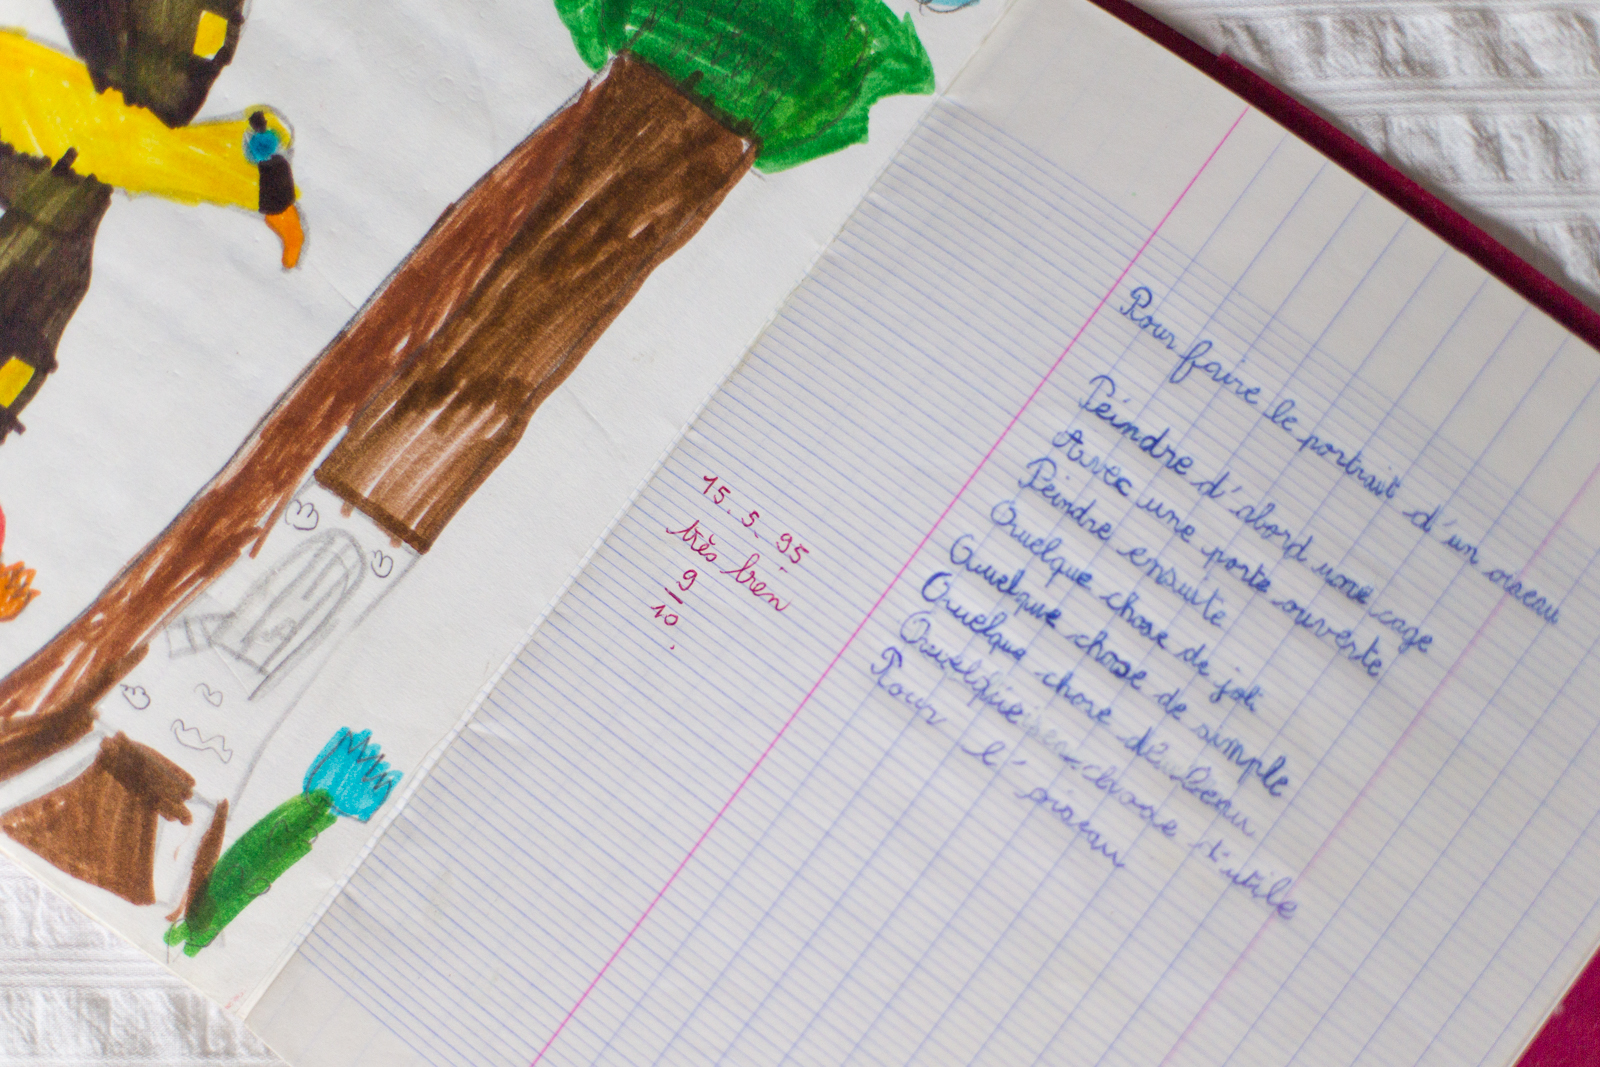 Pour faire le portrait d'un oiseau
Peindre d'abord une cage
Avec une porte ouverte
Peindre ensuite
Quelque chose de joli
Quelque chose de simple
Quelque chose de beau
Quelque chose d'utile
Pour l'oiseau
15.5.95
très bien
9
10